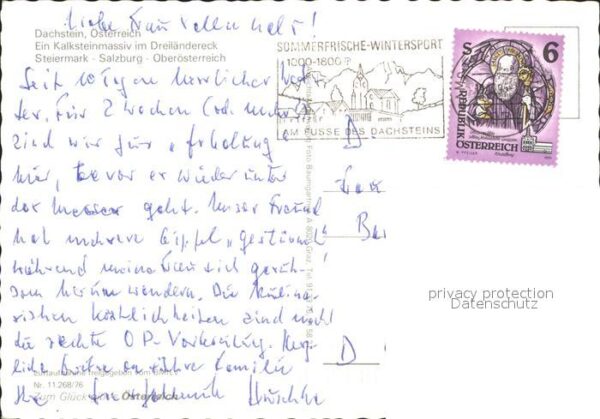 Liebe Frau
Dachstein, Österreich
Ein Kalksteinmassiv im Dreiländereck
Steiermark - Salzburg - Oberösterreich
SOMMERFRISCHE-WINTERSPORT
1000-1800
AM FUSSE DES DACHSTEINS
S 6
REPUBLIK
ÖSTERREICH
Seit 10 Tagen herrlicher Wet-
ter. Für 2 Wochen (od. mehr)
sind wir zur „Erholung"
hier, bevor er wieder unter
das Messer geht. Unser Freund
hat mehrere Gipfel „gestürmt"
während meine Frau u. ich geruh-
sam herum wandern. Die kulina-
rischen Köstlichkeiten sind noch
die rechte OP-Vorbereitung. Herz-
liche Grüße an Ihre Familie
Ihr
D.
Frau
D
privacy protection
Datenschutz
Nr. 11.268/76
Zum Glück Österreich